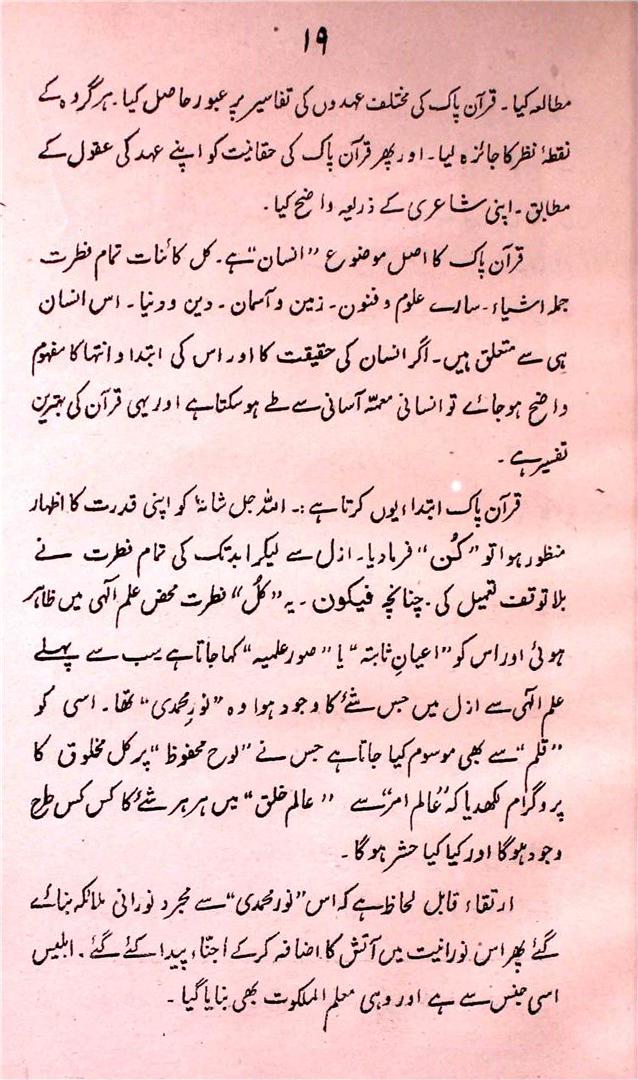 ۱۹
مطالعہ کیا۔ قرآن پاک کی مختلف عہدوں کی تفاسیر پر عبور حاصل کیا۔ ہر گروہ کے
نقطۂ نظر کا جائزہ لیا۔ اور پھر قرآن پاک کی حقانیت کو اپنے عہد کی عقول کے
مطابق۔ اپنی شاعری کے ذریعہ واضح کیا۔
قرآن پاک کا اصل موضوع ”انسان“ ہے۔ کل کائنات تمام فطرت
جملہ اشیاء۔ سارے علوم و فنون۔ زمین و آسمان۔ دین و دنیا۔ اس انسان
ہی سے متعلق ہیں۔ اگر انسان کی حقیقت کا اور اس کی ابتدا و انتہا کا مفہوم
واضح ہو جائے تو انسانی معمّہ آسانی سے طے ہو سکتا ہے اور یہی قرآن کی بہترین
تفسیر ہے۔
قرآن پاک ابتداء یوں کرتا ہے:۔ اللہ جل شانہٗ کو اپنی قدرت کا اظہار
منظور ہوا تو ”کُن“ فرما دیا۔ ازل سے لیکر ابد تک کی تمام فطرت نے
بلا توقف تعمیل کی۔ چنانچہ فیکون۔ یہ ”کُل“ فطرت محض علم الٰہی میں ظاہر
ہوئی اور اس کو ”اعیانِ ثابتہ“ یا ”صور علمیہ“ کہا جاتا ہے سب سے پہلے
علم الٰہی سے ازل میں جس شئے کا وجود ہوا وہ ”نورِ محمدی“ تھا۔ اسی کو
”قلم“ سے بھی موسوم کیا جاتا ہے جس نے ”لوح محفوظ“ پر کل مخلوق کا
پروگرام لکھدیا کہ ”عالم امر“ سے ”عالم خلق“ میں ہر ہر شئے کا کس کس طرح
وجود ہو گا اور کیا کیا حشر ہو گا۔
ارتقاء قابل لحاظ ہے کہ اس ”نور محمدی“ سے مجرد نورانی ملائکہ بنائے
گئے پھر اس نورانیت میں آتش کا اضافہ کر کے اجنّاء پیدا کئے گئے۔ ابلیس
اسی جنس سے ہے اور وہی معلم الملکوت بھی بنایا گیا۔